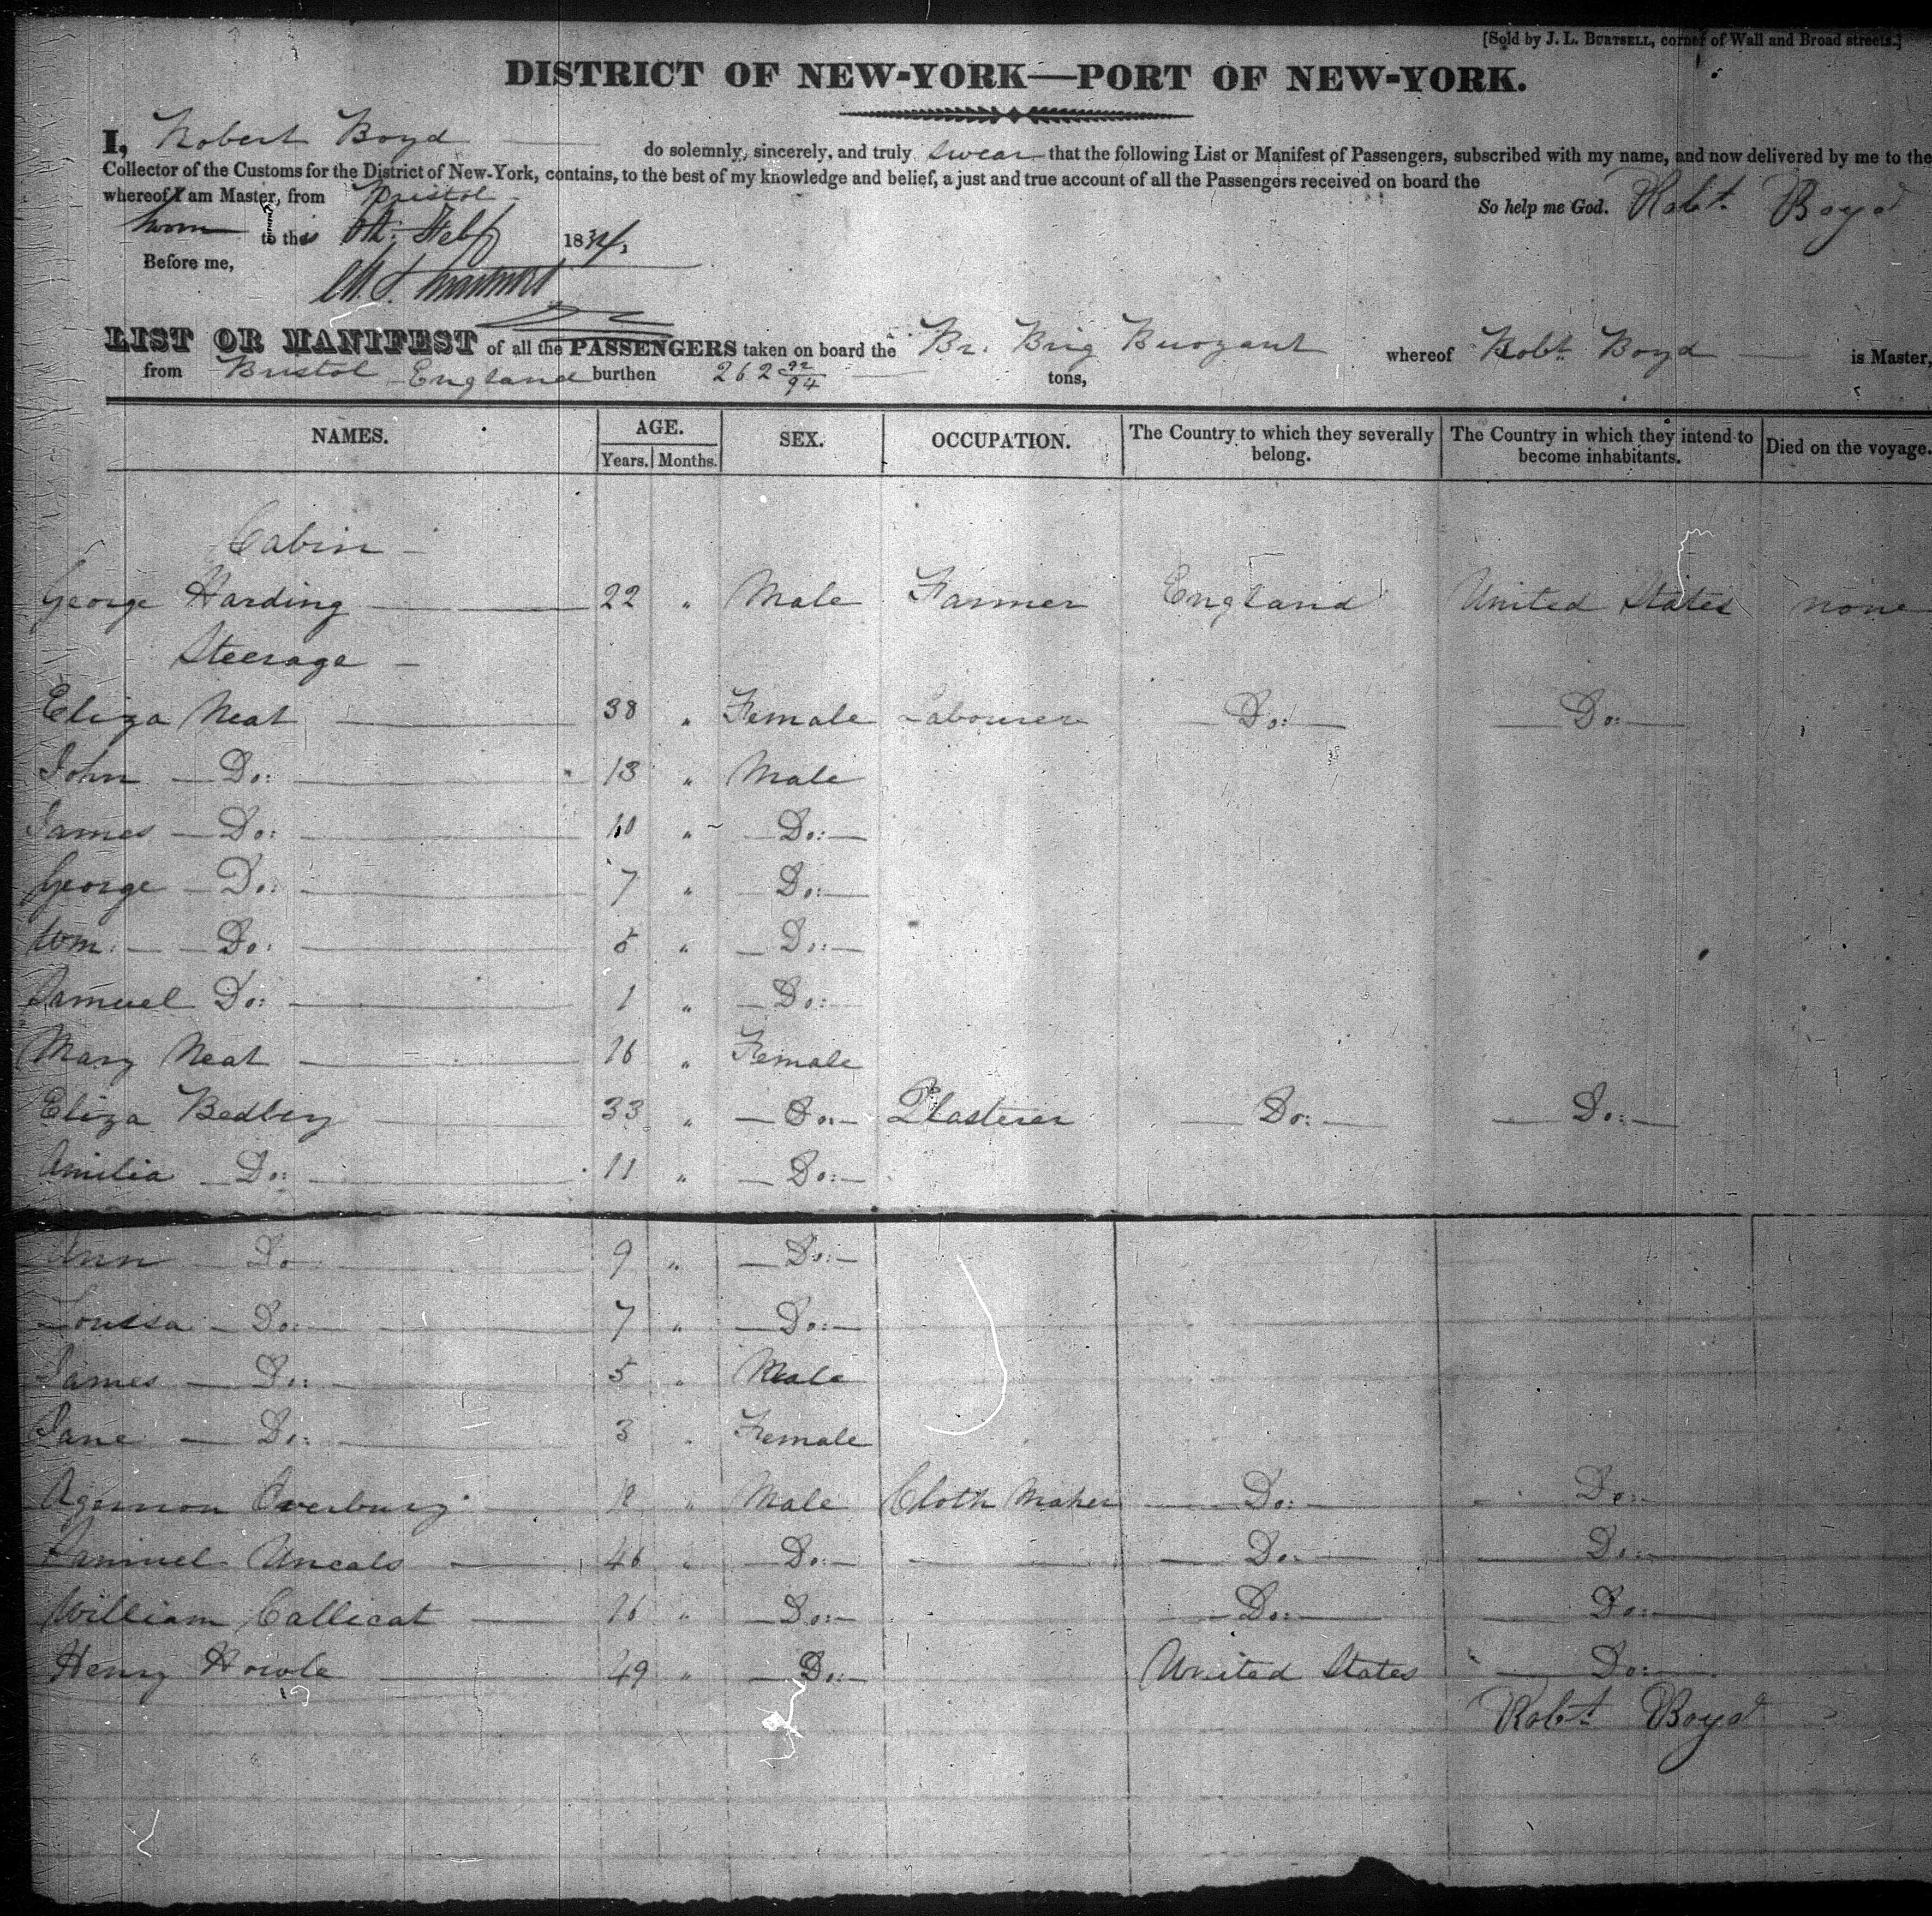 [Sold by J. L. BURTSELL, corner of Wall and Broad streets.]
DISTRICT OF NEW-YORK—PORT OF NEW-YORK.
I, Robert Boyd do solemnly, sincerely, and truly swear that the following List or Manifest of Passengers, subscribed with my name, and now delivered by me to the
Collector of the Customs for the District of New-York, contains, to the best of my knowledge and belief, a just and true account of all the Passengers received on board the
whereof I am Master, from Bristol
So help me God. Robt. Boyd
Sworn to this Feby 1834,
Before me,
LIST OR MANIFEST of all the PASSENGERS taken on board the Br. Brig Buoyant whereof Robt Boyd is Master,
from Bristol England burthen 262 92/94 tons,
NAMES. AGE. SEX. OCCUPATION. The Country to which they severally belong. The Country in which they intend to become inhabitants. Died on the voyage.
Years. Months.
Cabin —
George Harding 22 " Male Farmer England United States none
Steerage —
Eliza Neat 38 " Female Labourer Do: Do:
John Do: 13 " Male
James Do: 10 " Do:
George Do: 7 " Do:
Wm. Do: 5 " Do:
Samuel Do: 1 " Do:
Mary Neat 16 " Female
Eliza Bedbry 33 " Do: Plasterer Do: Do:
Amilia Do: 11 " Do:
Ann Do 9 " Do:
Louisa Do: 7 " Do:
James Do: 5 " Male
Jane Do: 3 " Female
Agernon Overbury 18 " Male Cloth Maker Do: Do:
Samuel Uncals 46 " Do: Do: Do:
William Callicat 16 " Do: Do: Do:
Henry Howle 49 " Do: United States Do:
Robt Boyd